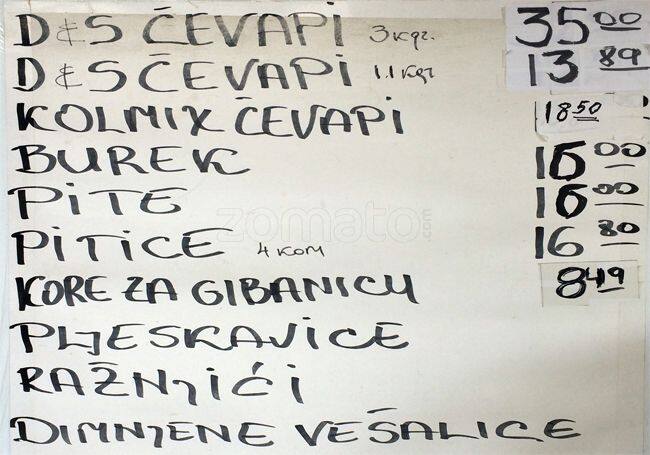 D&S ČEVAPI 3 kgr. 35 00
D&S ČEVAPI 1.1 Kgr 13 89
KOLMIX ČEVAPI 18 50
BUREK 16 00
PITE 16 00
zomato.com
PITICE 4 KOM 16 80
KORE ZA GIBANICU 8 49
PLJESKAVICE
RAŽNJIĆI
DIMNJENE VEŠALICE